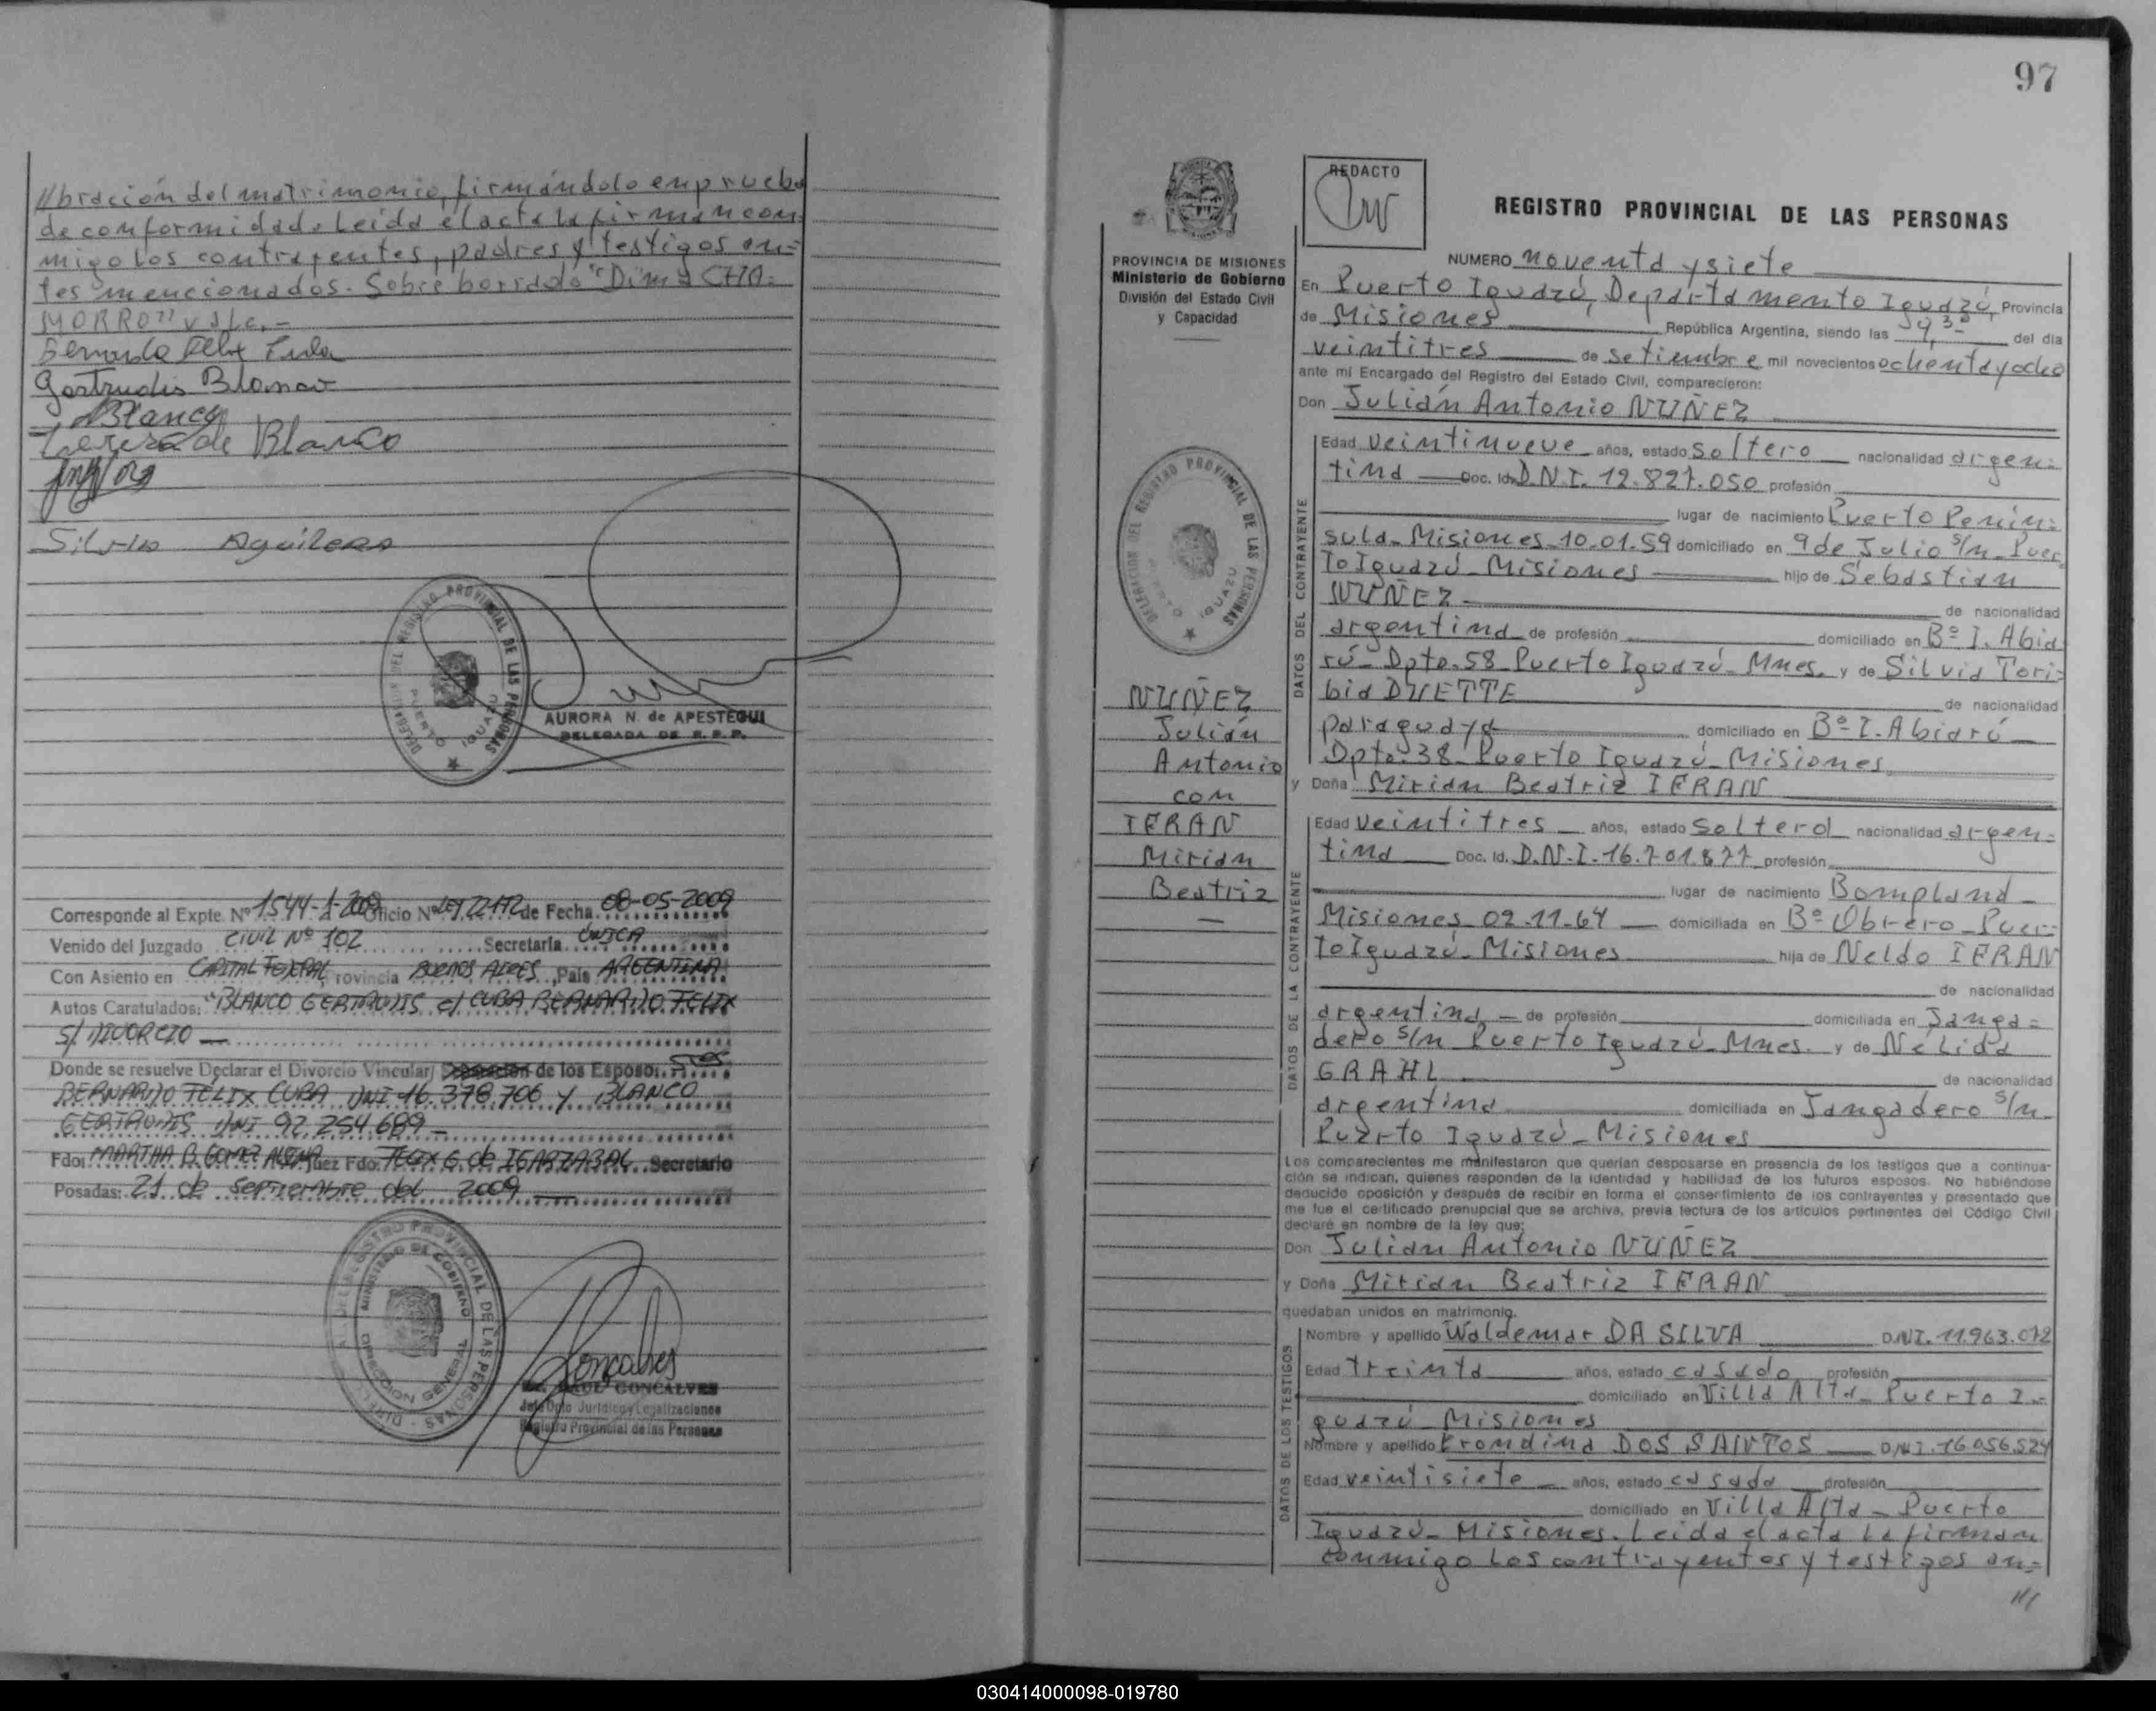 //bración del matrimonio, firmándolo en prueba
de conformidad. Leída el acta la firman con-
migo los contrayentes, padres y testigos an=
tes mencionados. Sobre borrado "Dima CHA=
MORRO" vale.-
Gertrudis Blanco
Blanco
de Blanco
Silvia Aguilera
DELEGACION DEL REGISTRO PROVINCIAL DE LAS PERSONAS
PUERTO IGUAZU
AURORA N. de APESTEGUI
DELEGADA DE R. P. P.
Corresponde al Expte. Nº 1544-1-2009 Oficio Nº de Fecha 08-05-2009
Venido del Juzgado CIVIL Nº 102 Secretaría UNICA
Con Asiento en CAPITAL FEDERAL Provincia BUENOS AIRES, País ARGENTINA
Autos Caratulados: "BLANCO GERTRUDIS c/ CUBA BERNARDO FELIX
S/ DIVORCIO
Donde se resuelve Declarar el Divorcio Vincular/ de los Esposo: Sres
BERNARDO FELIX CUBA DNI 16.378.706 Y BLANCO
GERTRUDIS DNI 92.254.689
Fdo: MARTHA B. GOMEZ ALSINA Juez Fdo: FELIX G. de IGARZABAL Secretario
Posadas: 21 de Septiembre del 2009
DEL REGISTRO PROVINCIAL DE LAS PERSONAS
MINISTERIO DE GOBIERNO
DIRECCION GENERAL
Goncalves
RAUL GONCALVES
Jefe Dpto Jurídico y Legalizaciones
Registro Provincial de las Personas
97
REDACTO
REGISTRO PROVINCIAL DE LAS PERSONAS
PROVINCIA DE MISIONES
Ministerio de Gobierno
División del Estado Civil
y Capacidad
DELEGACION DEL REGISTRO PROVINCIAL DE LAS PERSONAS
PUERTO IGUAZU
NUÑEZ
Julián
Antonio
con
IFRAN
Mirian
Beatriz
NUMERO noventa y siete
En Puerto Iguazú, Departamento Iguazú, Provincia
de Misiones República Argentina, siendo las del día
veintitres de setiembre mil novecientos ochenta y ocho
ante mí Encargado del Registro del Estado Civil, comparecieron:
Don Julián Antonio NUÑEZ
DATOS DEL CONTRAYENTE
Edad veintinueve años, estado soltero nacionalidad argen=
tina Doc. Id. D.N.I. 12.827.050 profesión
lugar de nacimiento Puerto Penín=
sula-Misiones-10.01.59 domiciliado en 9 de Julio s/n-Puer
to Iguazú-Misiones hijo de Sebastian
NUÑEZ de nacionalidad
argentina de profesión domiciliado en Bº I. Abia
rú-Dpto.58-Puerto Iguazú-Mnes. y de Silvia Tori=
bia DUETTE de nacionalidad
paraguaya domiciliado en Bº I. Abiarú
Dpto.38-Puerto Iguazú-Misiones
y Doña Mirian Beatriz IFRAN
DATOS DE LA CONTRAYENTE
Edad veintitres años, estado soltera nacionalidad argen=
tina Doc. Id. D.N.I. 16.701.877 profesión
lugar de nacimiento Bompland-
Misiones-02.11.64 domiciliada en Bº Obrero-Puer=
to Iguazú-Misiones hija de Neldo IFRAN
de nacionalidad
argentina de profesión domiciliada en Janga=
dero s/n-Puerto Iguazú-Mnes. y de Nélida
GRAHL de nacionalidad
argentina domiciliada en Jangadero s/n-
Puerto Iguazú-Misiones
Los comparecientes me manifestaron que querían desposarse en presencia de los testigos que a continua-
ción se indican, quienes responden de la identidad y habilidad de los futuros esposos. No habiéndose
deducido oposición y después de recibir en forma el consentimiento de los contrayentes y presentado que
me fue el certificado prenupcial que se archiva, previa lectura de los artículos pertinentes del Código Civil
declaré en nombre de la ley que:
Don Julián Antonio NUÑEZ
y Doña Mirian Beatriz IFRAN
quedaban unidos en matrimonio.
DATOS DE LOS TESTIGOS
Nombre y apellido Waldemar DA SILVA D.N.I. 11.963.072
Edad treinta años, estado casado profesión
domiciliado en Villa Alta-Puerto I-
guazú-Misiones
Nombre y apellido Erondina DOS SANTOS D.N.I. 16.056.524
Edad veintisiete años, estado casada profesión
domiciliado en Villa Alta-Puerto
Iguazú-Misiones. Leída el acta la firman
conmigo los contrayentes y testigos an=
///
030414000098-019780